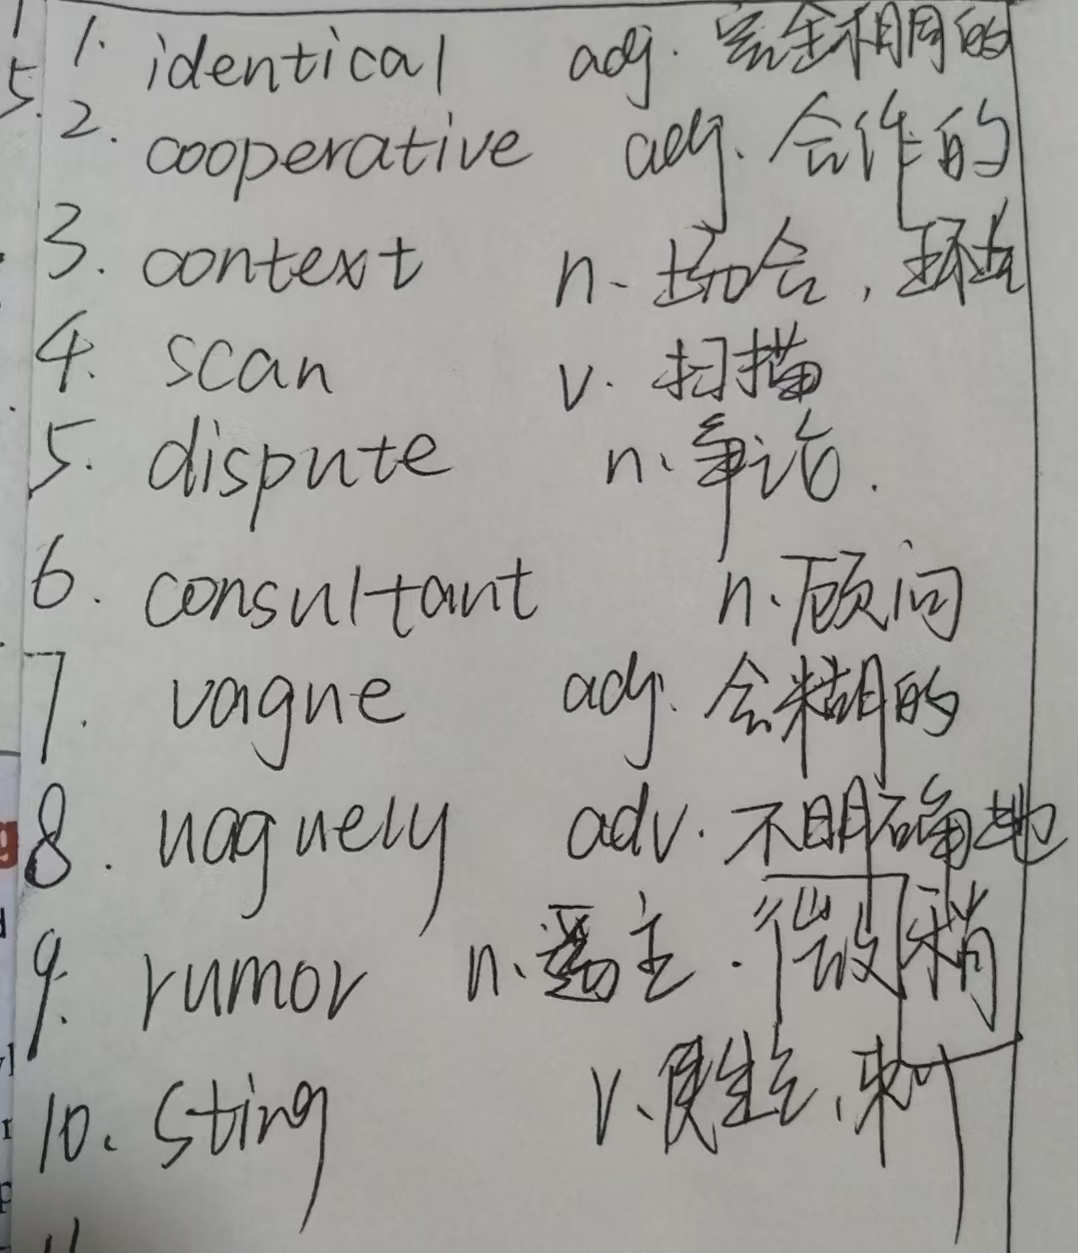 1. identical adj. 完全相同的
2. cooperative adj. 合作的
3. context n. 场合,环境
4. scan v. 扫描
5. dispute n. 争论.
6. consultant n. 顾问
7. vague adj. 含糊的
8. vaguely adv. 不明确地
微稍
9. rumor n.
10. sting v. 刺